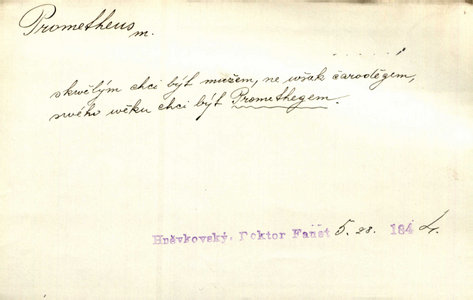 Prometheus
m.
. . . . . !
skwělým chci být mužem, ne wšak čaroděgem,
swého wěku chci být Promethegem.
Hněvkovský, Doktor Faust 5. 28. 1844.